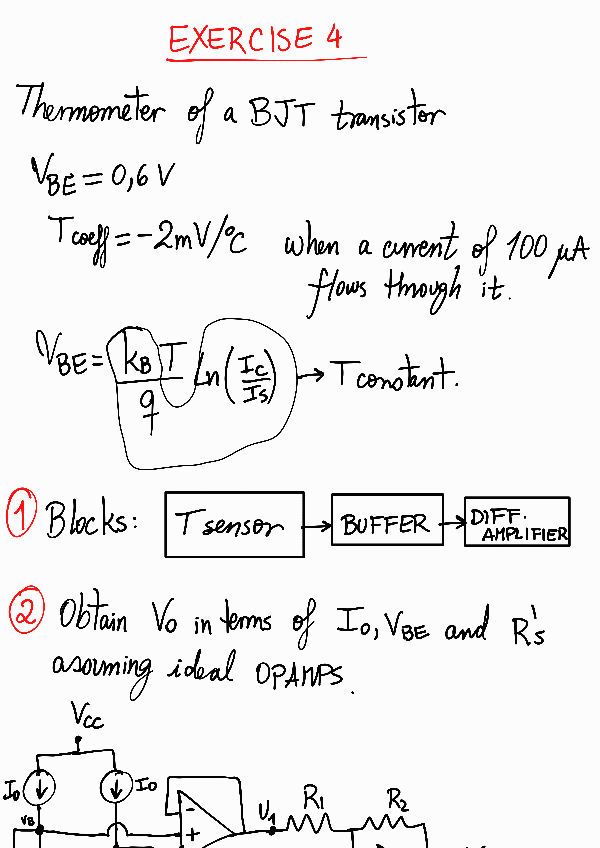 EXERCISE 4
Thermometer of a BJT transistor
VBE = 0,6 V
Tcoeff = -2mV/°C when a current of 100 μA
flows through it.
VBE = kB T / q Ln (Ic / Is) → T constant.
① Blocks: T sensor → BUFFER → DIFF. AMPLIFIER
② Obtain Vo in terms of Io, VBE and R's
assuming ideal OPAMPS.
Vcc
Io Io
VB - + V1 R1 R2